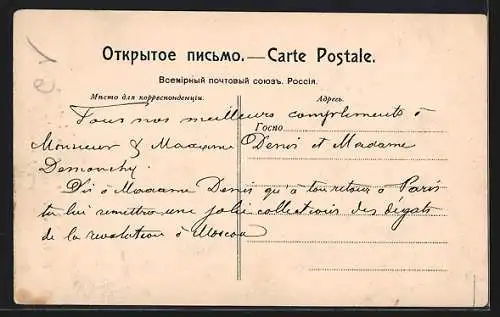 Открытое письмо. — Carte Postale.
Всемірный почтовый союзъ. Россія.
Мѣсто для корреспонденціи.
Адресъ.
Tous nos meilleurs compliments à
Госпо
Monsieur & Madame Denis et Madame
Demonchy.
Dis à Madame Denis qu'à ton retour à Paris
tu lui remettras une jolie collections des dégats
de la revolution à Moscou